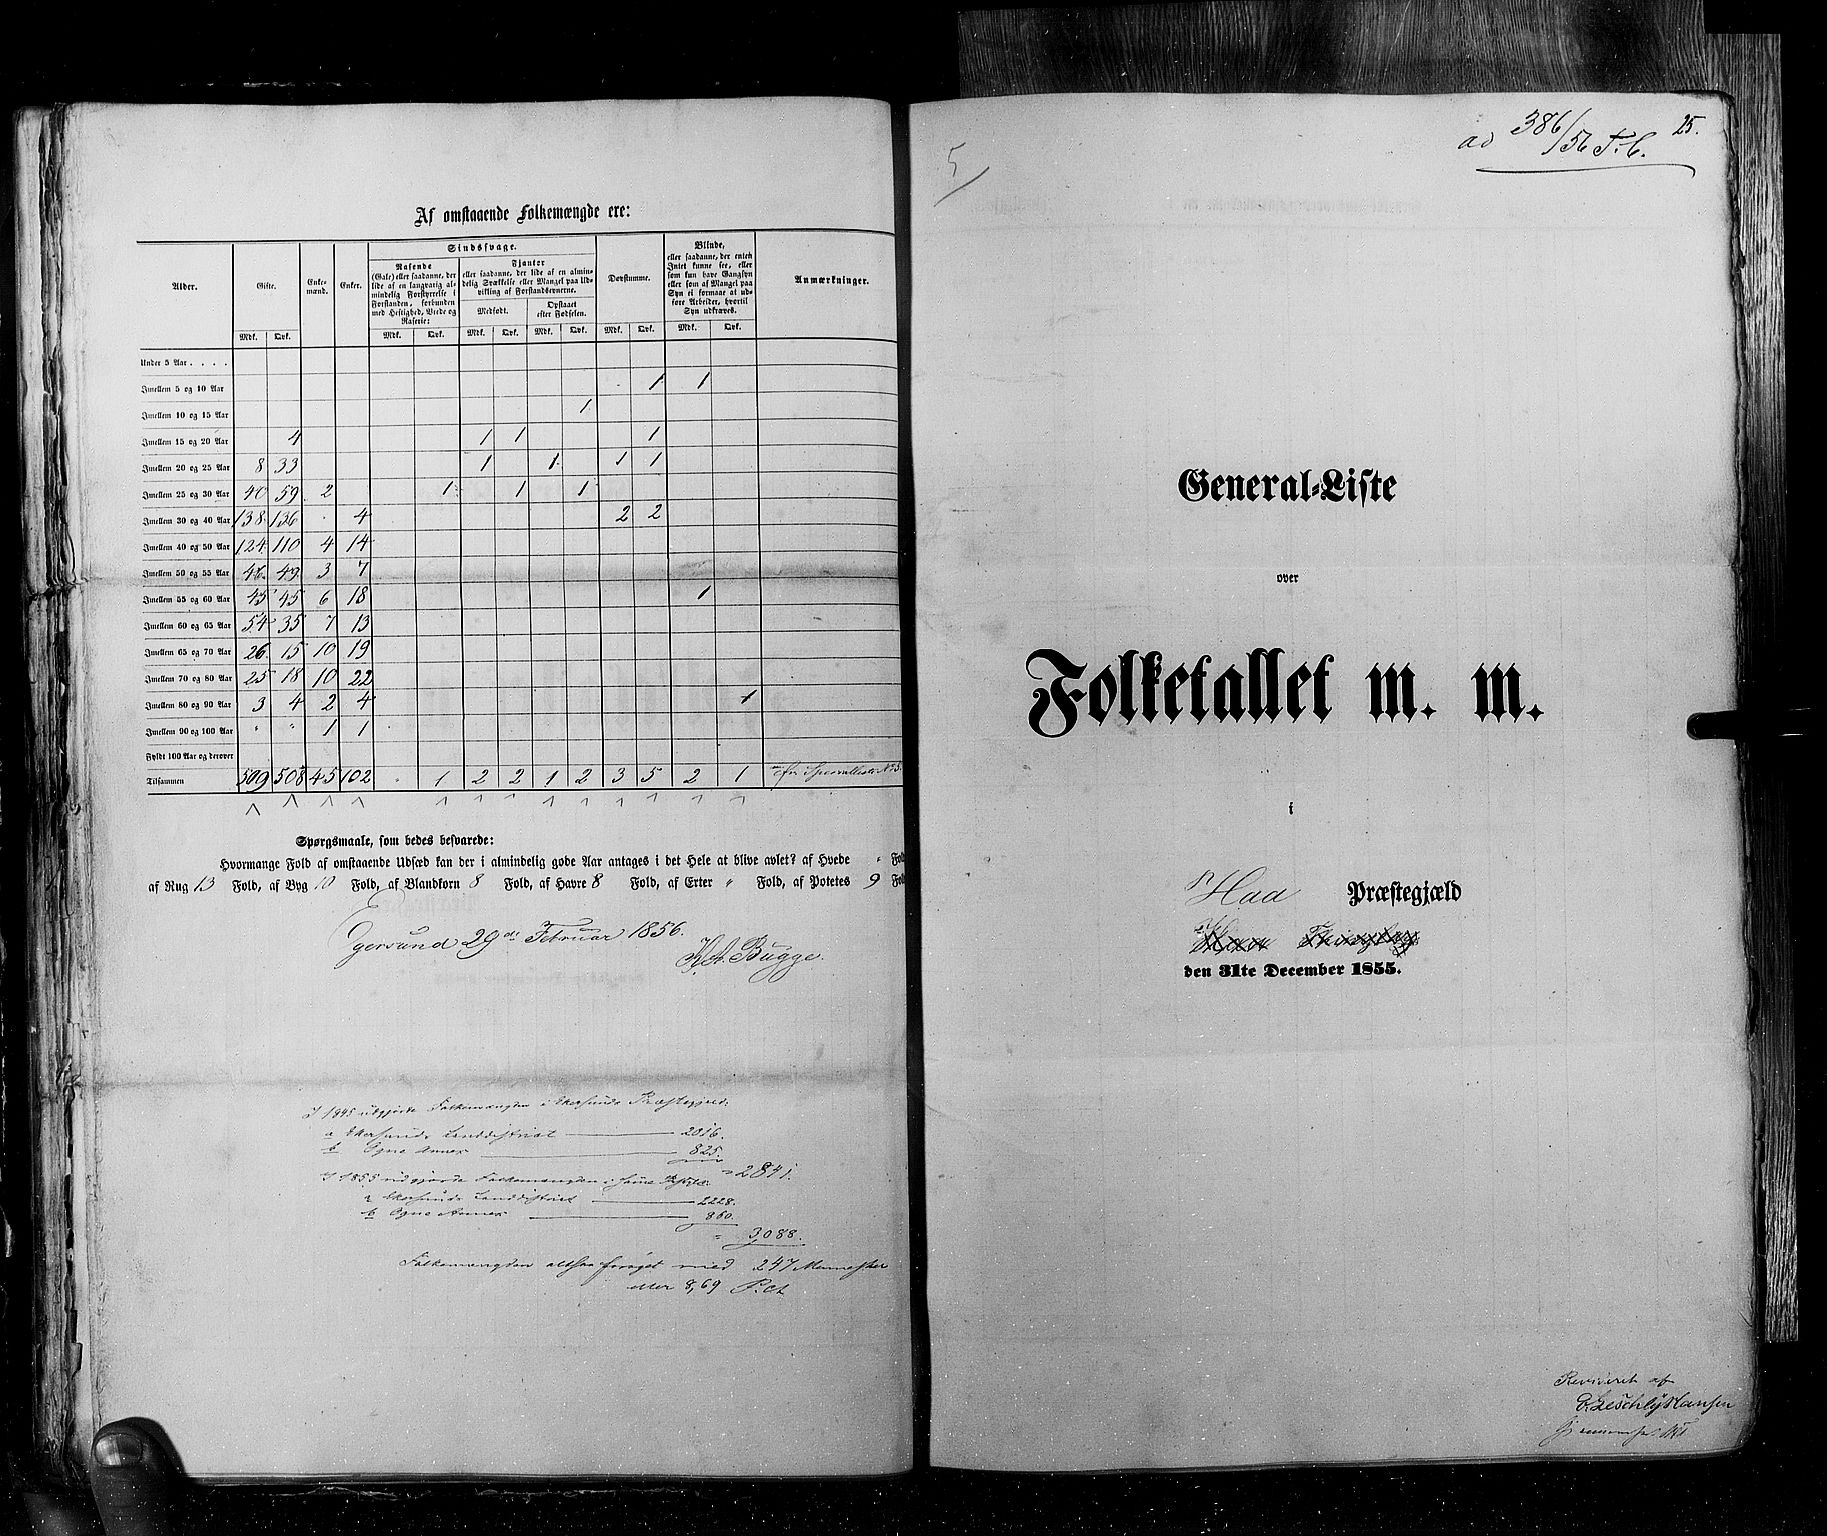 Af omstaaende Folkemængde ere:
Alder. Gifte. Enkemænd. Enker. Sindssvage. Døvstumme. Blinde, eller saadanne, der enten Intet kunne see, eller som kun have Gangsyn eller som af Mangel paa Syn ei formaae at udføre Arbeider, hvortil Syn udkræves. Anmærkninger.
Rasende (Gale) eller saadanne, der lide af en langvarig almindelig Forstyrrelse i Forstanden, forbunden med Heftighed, Vrede og Raserie:
Fjanter eller saadanne, der lide af en almindelig Svækkelse eller Mangel paa Udvikling af Forstandsevnerne.
Medfødt. Opstaaet efter Fødselen.
Mdk. Qvk. Mdk. Qvk. Mdk. Qvk. Mdk. Qvk. Mdk. Qvk. Mdk. Qvk.
Under 5 Aar . . . .
Imellem 5 og 10 Aar 1 1
Imellem 10 og 15 Aar 1
Imellem 15 og 20 Aar 4 1 1 1
Imellem 20 og 25 Aar 8 33 1 1 1 1
Imellem 25 og 30 Aar 40 59 2 1 1 1
Imellem 30 og 40 Aar 138 136 4 2 2
Imellem 40 og 50 Aar 124 110 4 14
Imellem 50 og 55 Aar 46 49 3 7
Imellem 55 og 60 Aar 45 45 6 18 1
Imellem 60 og 65 Aar 54 35 7 13
Imellem 65 og 70 Aar 26 15 10 19
Imellem 70 og 80 Aar 25 18 10 22
Imellem 80 og 90 Aar 3 4 2 4 1
Imellem 90 og 100 Aar " " 1 1
Fyldt 100 Aar og derover
Tilsammen 509 508 45 102 " 1 2 2 1 2 3 5 2 1 Specialliste No 3.
Spørgsmaale, som bedes besvarede:
Hvormange Fold af omstaaende Udsæd kan der i almindelig gode Aar antages i det Hele at blive avlet? af Hvede " Fold
af Rug 13 Fold, af Byg 10 Fold, af Blandkorn 8 Fold, af Havre 8 Fold, af Erter " Fold, af Potetes 9 Fold
Egersund 29de Februar 1856.
Bugge.
I 1845 udgjorde Folkemængden i Ekersunds Præstegjeld:
a Ekersunds Landdistrict 2016.
b Ogne Annex 825.
" 2841.
I 1855 udgjorde Folkemængden i samme
a Ekersunds Landdistrict 2228.
b Ogne Annex 860.
" 3088.
Folkemængden altsaa forøget med 247 Mennesker
eller 8,69 P.Ct
5/
25.
ad 386/56 F. C.
General-Liste
over
Folketallet m. m.
i
Haa Præstegjæld
den 31te December 1855.
Revideret af